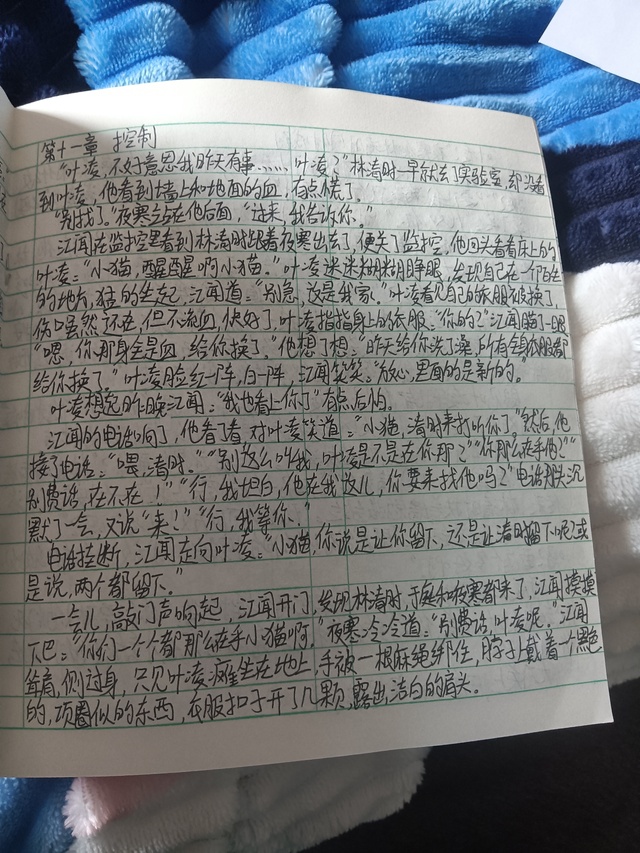 第十一章 控制
"叶凌,不好意思我昨天有事……叶凌?"林清时一早就去了实验室,却没看
到叶凌,他看到墙上和地面的血,有点慌了。
"别找了。"夜寒站在他后面,"过来,我告诉你。"
江闻在监控里看到林清时跟着夜寒出去了,便关了监控,他回头看看床上的
叶凌:"小猫,醒醒啊小猫。"叶凌迷迷糊糊睁眼,发现自己在一个陌生
的地方,猛的坐起,江闻道:"别急,这是我家。"叶凌看见自己的衣服被换了,
伤口虽然还在,但不流血,快好了,叶凌指指身上的衣服:"你的?"江闻瞄了一眼
"嗯,你那身全是血,给你换了。"他想了想:"昨天给你洗了澡,所有全身衣服都
给你换了。"叶凌脸红一阵,白一阵,江闻笑笑:"放心,里面的是新的。"
叶凌想起昨晚江闻:"我也看上你了"有点后怕。
江闻的电话响了,他看了看,对叶凌笑道:"小猫,清时来打听你了。"然后,他
接了电话:"喂,清时。""别这么叫我,叶凌是不是在你那?""你那么在乎他?""
别费话,在不在!""行,我坦白,他在我这儿,你要来找他吗?"电话那头沉
默了一会,又说"来!""行,我等你。"
电话挂断,江闻走向叶凌:"小猫,你说是让你留下,还是让清时留下呢,或
是说,两个都留下。"
一会儿,敲门声响起,江闻开门,发现林清时,于庭和夜寒都来了,江闻摸摸
下巴:"你们一个个都那么在乎小猫啊。"夜寒冷冷道:"别费话,叶凌呢。"江闻
耸肩,侧过身,只见叶凌瘫坐在地上,手被一根麻绳绑住,脖子上戴着一个黑色
的,项圈似的东西,衣服扣子开了几颗,露出洁白的肩头。